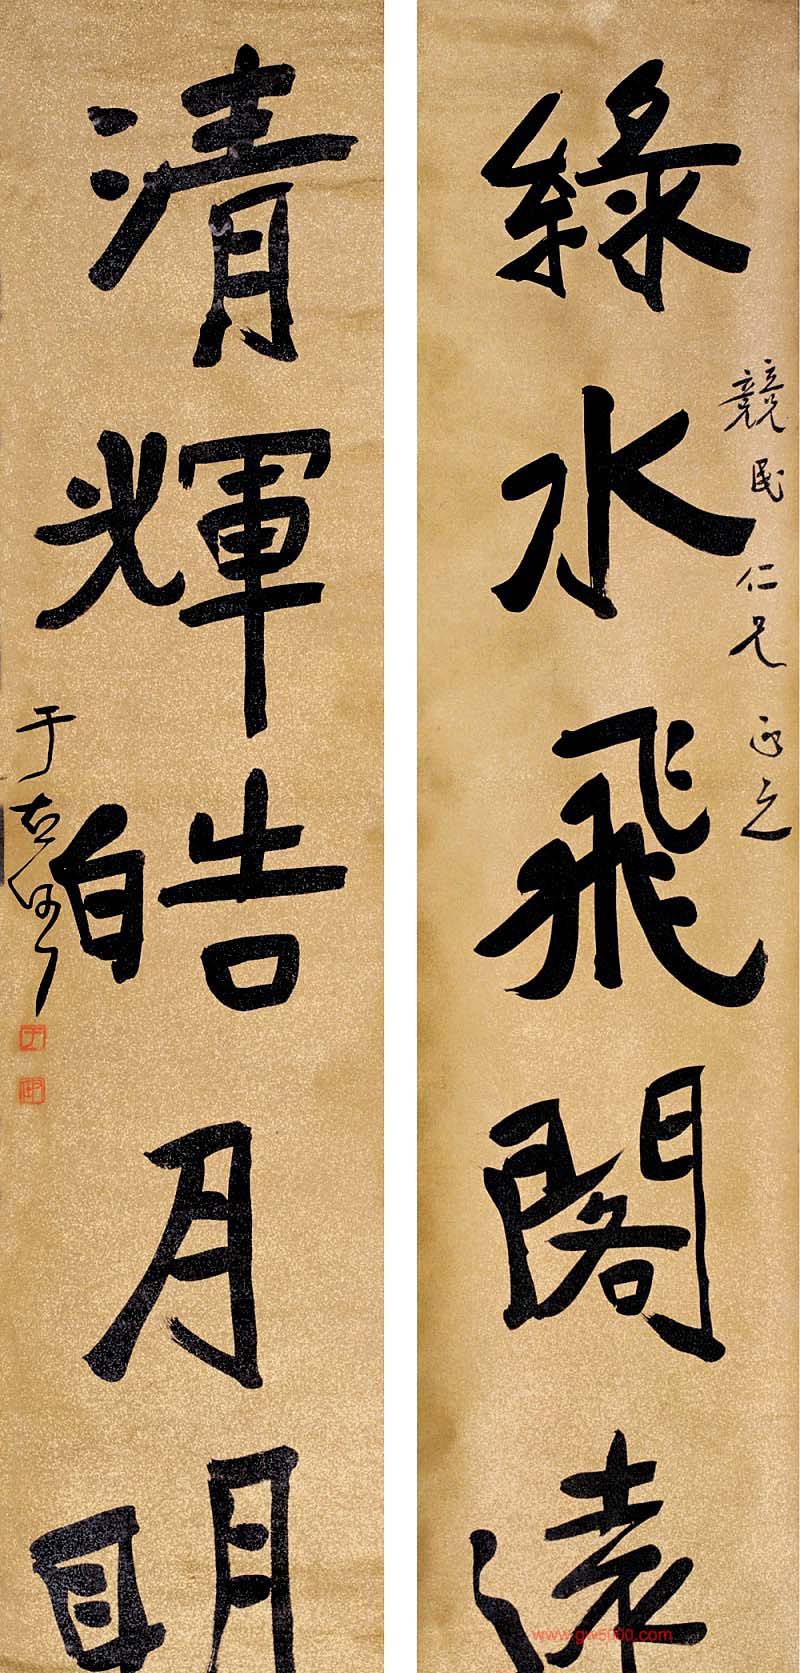 綠水飛閣遠
競民仁兄正之
清輝皓月明
于右任
www.gw5000.com